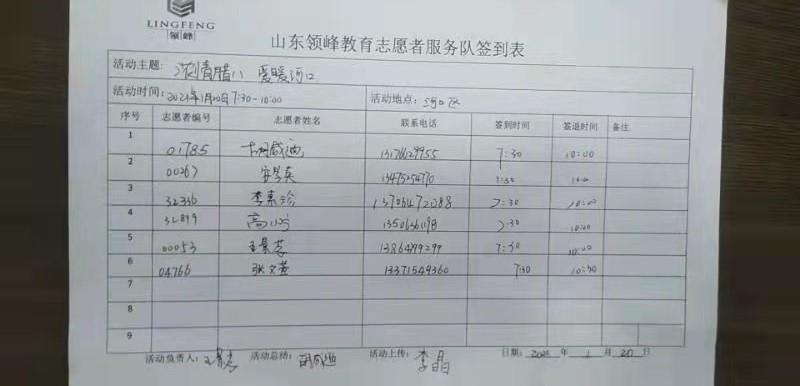 LINGFENG
领峰
山东领峰教育志愿者服务队签到表
活动主题: 浓情腊八 爱暖河口
活动时间: 2021年1月20日 7:30-10:00 活动地点: 河口区
序号 志愿者编号 志愿者姓名 联系电话 签到时间 签退时间 备注
1 01785 13176629955 7:30 10:00
2 00267 13475254770 7:30
3 32336 李素珍 13706472088 7:30 10:00
4 32899 高 7:30 10:00
5 00053 王景芳 7:30 10:00
6 04766 张文 13371549360 7:30 10:30
7
8
9
活动负责人: 王景芳 活动总结: 活动上传: 李晶 日期: 2021 年 1 月 20 日